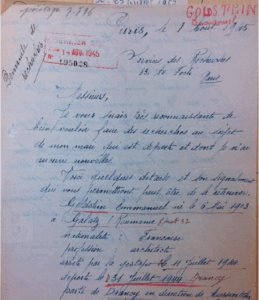 GOLDSTEIN
Paris, le 1 Aout 1945
14 AOU 1945
195028
Demande de recherches
Service des Recherches
Paris
Messieurs,
Je vous serais très reconnaissante de
bien vouloir faire des recherches au sujet
de mon mari qui est déporté et dont je n'ai
aucune nouvelle.
quelques détails et son signalement
qui vous permettront peut être de le
Goldstein Emmanuel né le 5 Mai 1903
à Galatz (Roumanie)
nationalité : Française
profession architecte
arrêté par la gestapo le 11 Juillet 1944
déporté le 31 Juillet 1944 Drancy
de Drancy en direction de